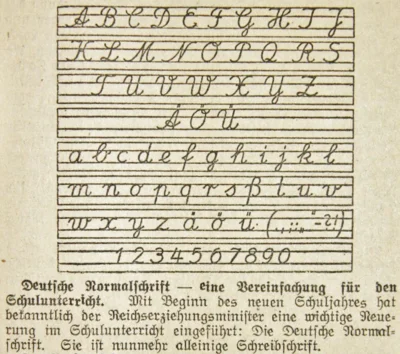 A B C D E F G H I J
K L M N O P Q R S
T U V W X Y Z
Ä Ö Ü
a b c d e f g h i j k l
m n o p q r s ß t u v
w x y z ä ö ü (.,:;„“-?!)
1 2 3 4 5 6 7 8 9 0
Deutsche Normalschrift — eine Vereinfachung für den
Schulunterricht. Mit Beginn des neuen Schuljahres hat
bekanntlich der Reichserziehungsminister eine wichtige Neue-
rung im Schulunterricht eingeführt: Die Deutsche Normal-
schrift. Sie ist nunmehr alleinige Schreibschrift.